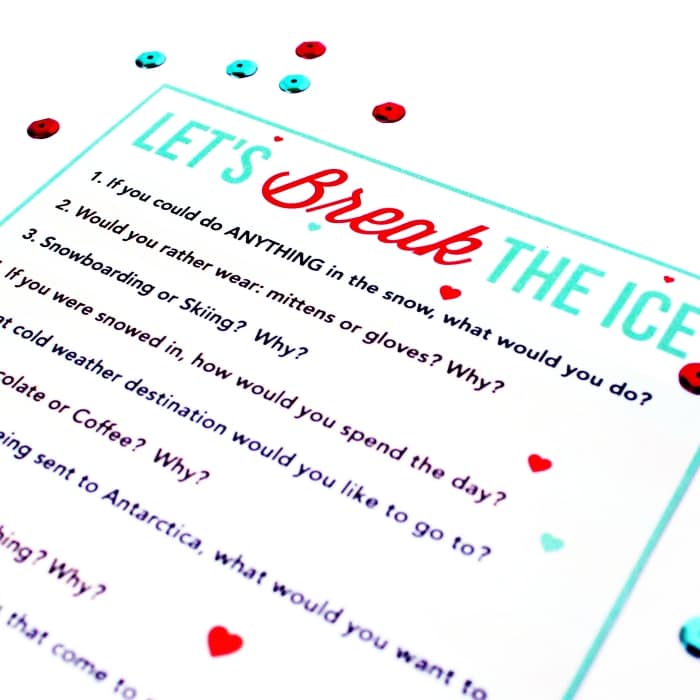 LET'S Break THE ICE
1. If you could do ANYTHING in the snow, what would you do?
2. Would you rather wear: mittens or gloves? Why?
3. Snowboarding or Skiing? Why?
If you were snowed in, how would you spend the day?
cold weather destination would you like to go to?
or Coffee? Why?
sent to Antarctica, what would you want to
Why?
that come to